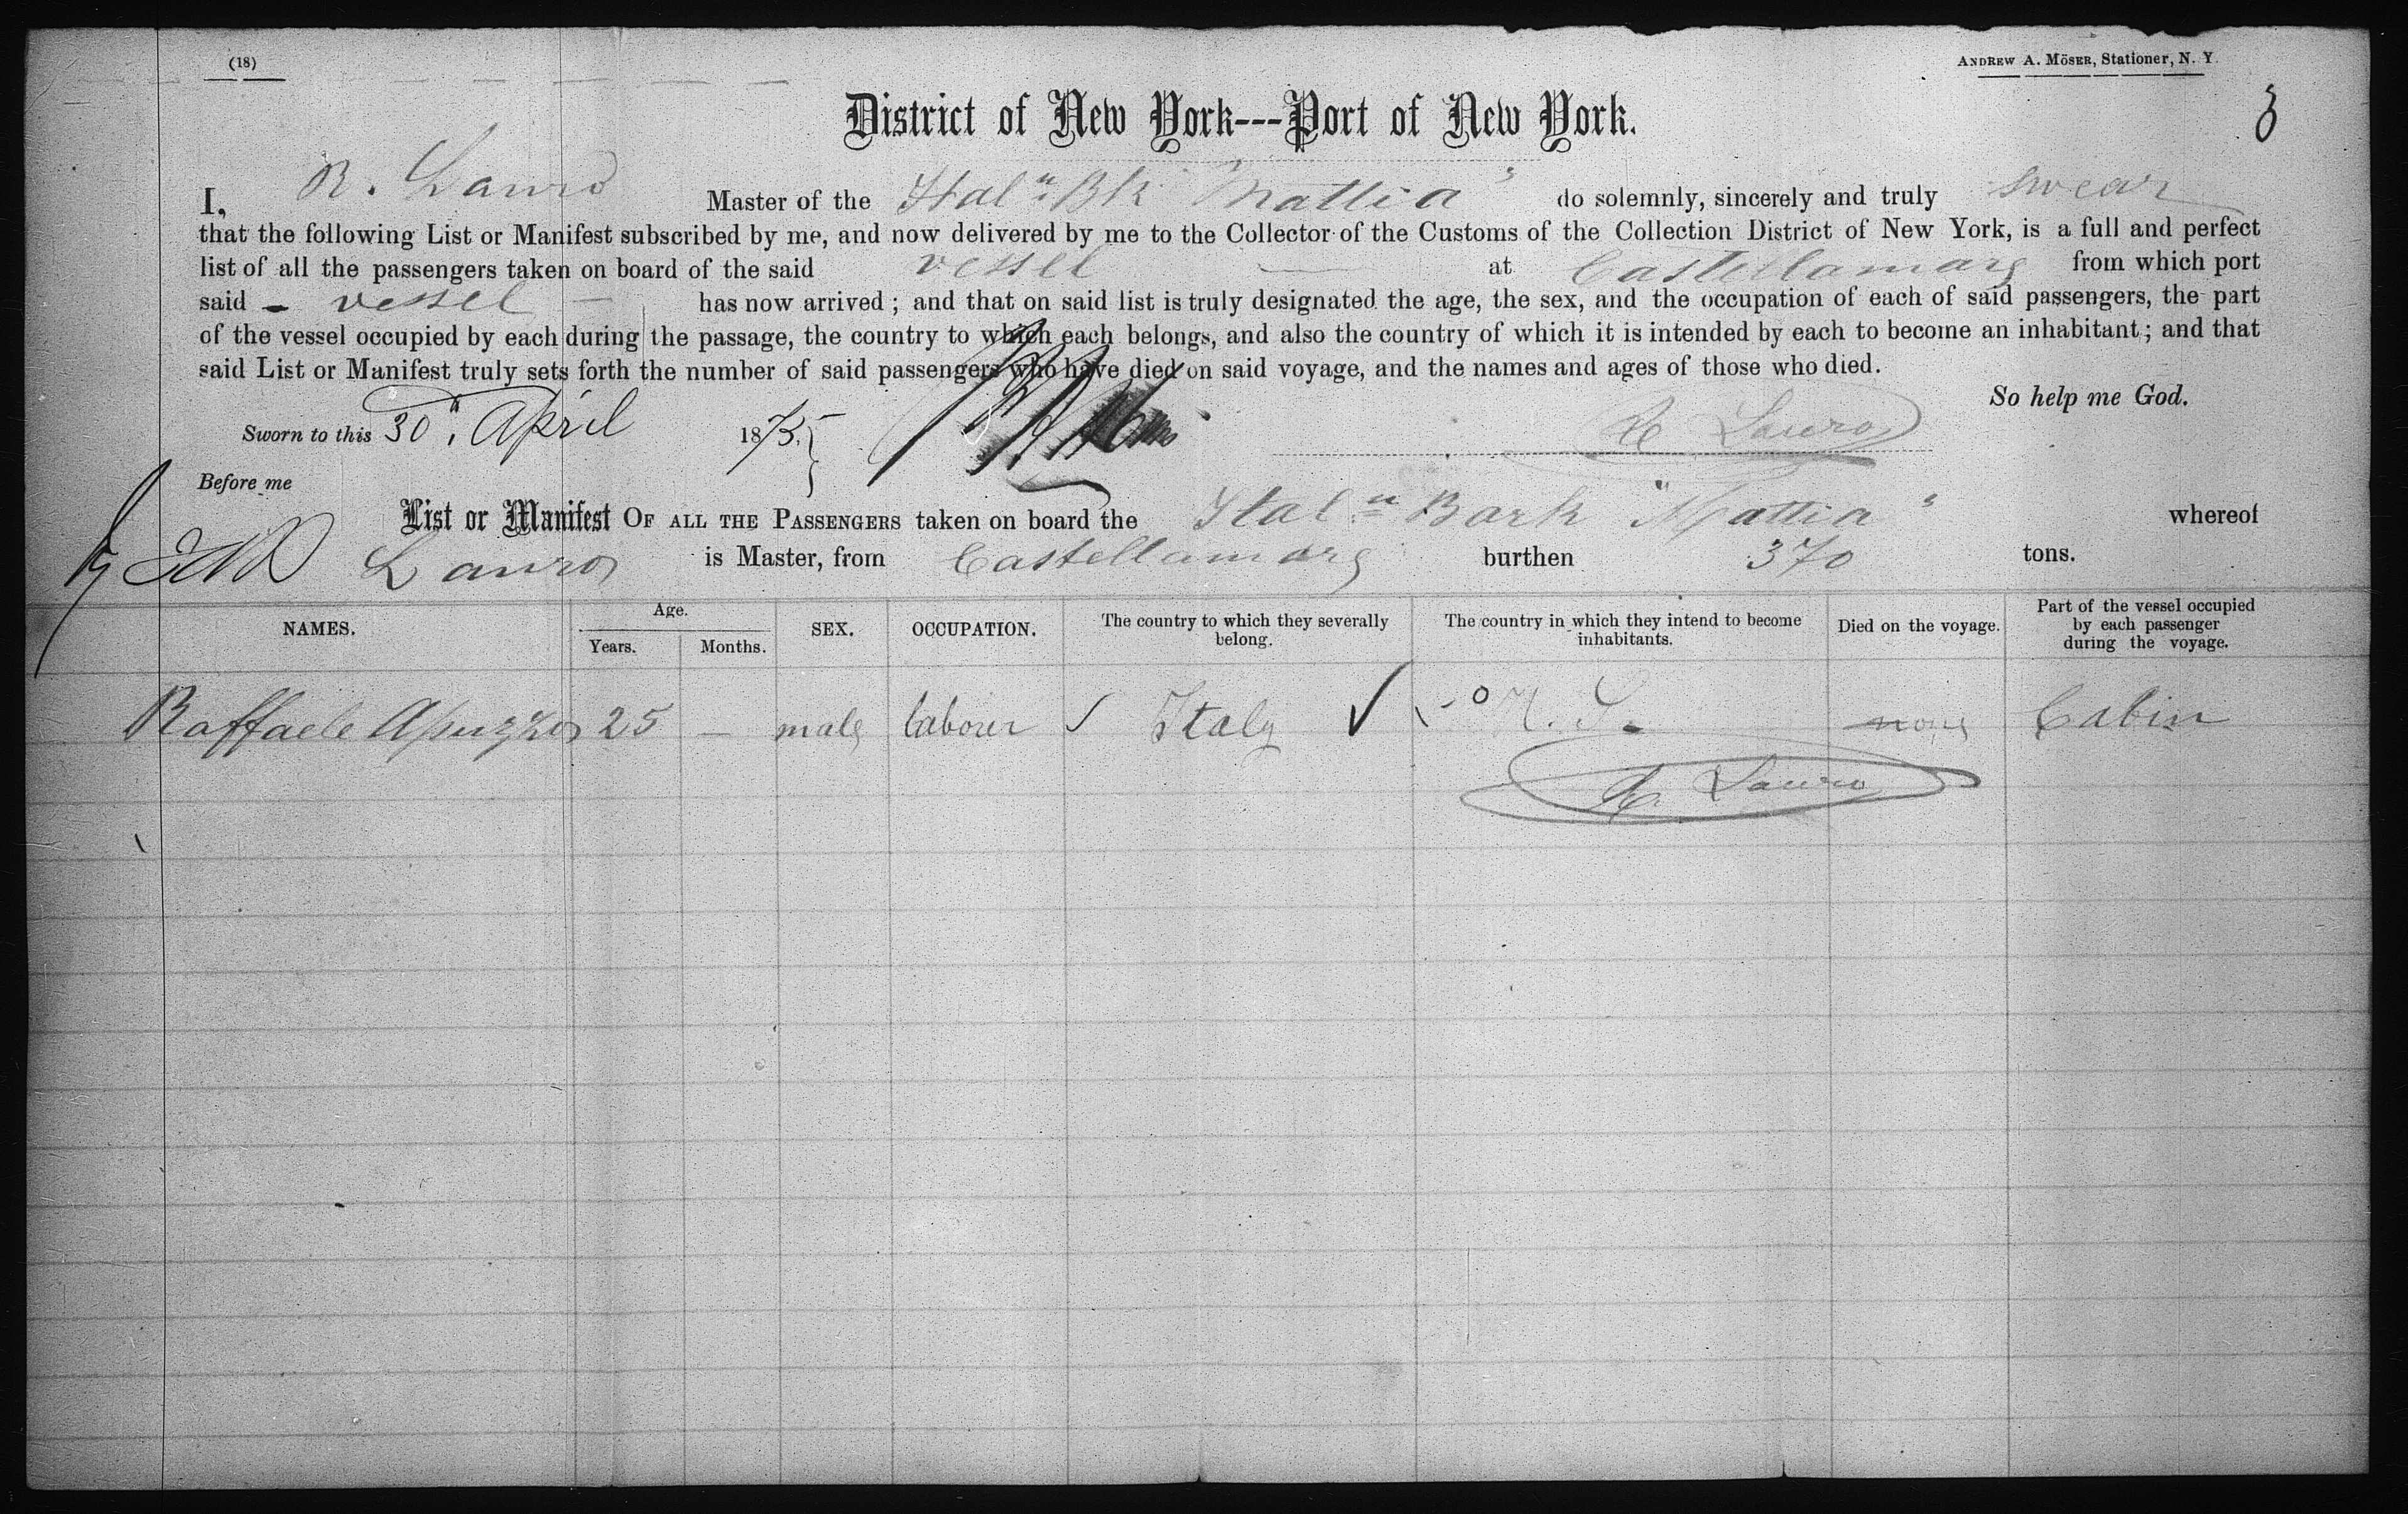 (18)
ANDREW A. MÖSER, Stationer, N. Y.
District of New York---Port of New York.
I, R. Lauro Master of the Ital.n Bk "Mattia" do solemnly, sincerely and truly swear
that the following List or Manifest subscribed by me, and now delivered by me to the Collector of the Customs of the Collection District of New York, is a full and perfect
list of all the passengers taken on board of the said vessel at Castellamare from which port
said - vessel - has now arrived; and that on said list is truly designated the age, the sex, and the occupation of each of said passengers, the part
of the vessel occupied by each during the passage, the country to which each belongs, and also the country of which it is intended by each to become an inhabitant; and that
said List or Manifest truly sets forth the number of said passengers who have died on said voyage, and the names and ages of those who died.
So help me God.
Sworn to this 30th April 1875.
R Lauro
Before me
List or Manifest OF ALL THE PASSENGERS taken on board the Ital.n Bark "Mattia" whereof
Lauro is Master, from Castellamare burthen 370 tons.
NAMES. Age. Years. Months. SEX. OCCUPATION. The country to which they severally belong. The country in which they intend to become inhabitants. Died on the voyage. Part of the vessel occupied by each passenger during the voyage.
Raffaele Apuzzo 25 — male labourer Italy none Cabin
R. Lauro